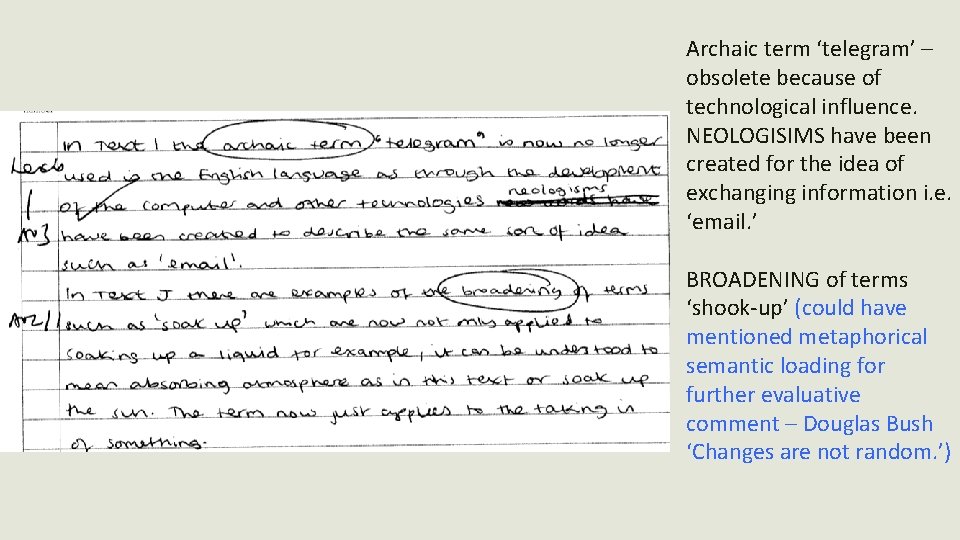 In Text I the archaic term "telegram" is now no longer
Lexis
used is the English language as through the development
of the computer and other technologies neologisms
AO3
have been created to describe the same sort of idea
such as 'email'.
In Text J there are examples of the broadening of terms
AO2
such as 'soak up' which are now not only applied to
soaking up a liquid for example, it can be understood to
mean absorbing atmosphere as in this text or soak up
the sun. The term now just applies to the taking in
of something.
Archaic term ‘telegram’ –
obsolete because of
technological influence.
NEOLOGISIMS have been
created for the idea of
exchanging information i.e.
‘email.’
BROADENING of terms
‘shook-up’ (could have
mentioned metaphorical
semantic loading for
further evaluative
comment – Douglas Bush
‘Changes are not random.’)